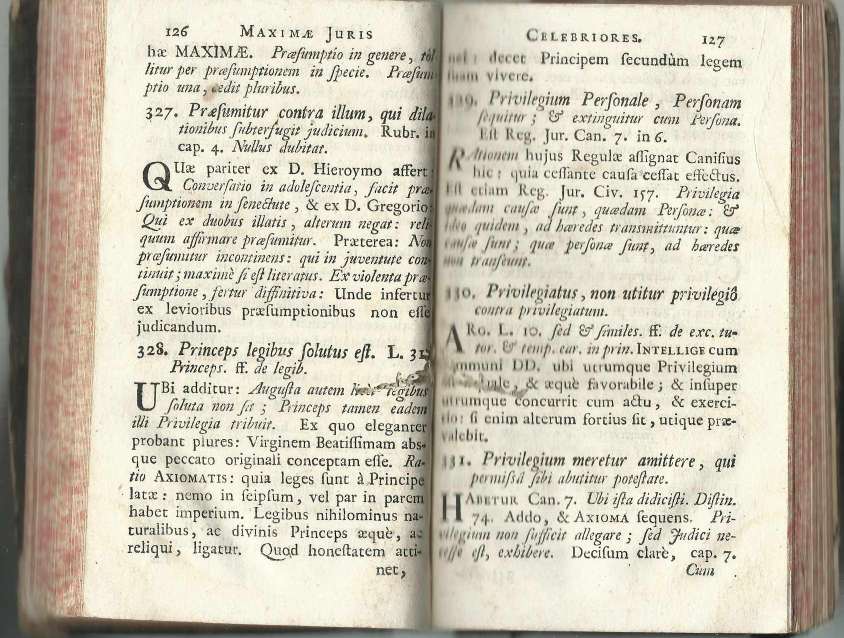 126 MAXIMÆ JURIS
hæ MAXIMÆ. Præſumptio in genere, tol
litur per præſumptionem in ſpecie. Præſum
ptio una, cedit pluribus.
327. Præſumitur contra illum, qui dila
tionibus ſubterfugit judicium. Rubr. in
cap. 4. Nullus dubitat.
QUæ pariter ex D. Hieroymo affert:
Converſatio in adoleſcentia, facit præ
ſumptionem in ſenectute, & ex D. Gregorio:
Qui ex duobus illatis, alterum negat: reli
quum affirmare præſumitur. Præterea: Non
præſumitur incontinens: qui in juventute con
tinuit; maximè ſi eſt literatus. Ex violenta præ-
ſumptione, fertur diffinitiva: Unde infertur
ex levioribus præſumptionibus non eſſe
judicandum.
328. Princeps legibus ſolutus eſt. L. 31.
Princeps. ff. de legib.
UBi additur: Auguſta autem legibus
ſoluta non ſit; Princeps tamen eadem
illi Privilegia tribuit. Ex quo eleganter
probant plures: Virginem Beatiſſimam abs-
que peccato originali conceptam eſſe. Ra-
tio AXIOMATIS: quia leges ſunt à Principe
latæ: nemo in ſeipſum, vel par in parem
habet imperium. Legibus nihilominus na-
turalibus, ac divinis Princeps æquè, ac
reliqui, ligatur. Quod honeſtatem atti-
net,
CELEBRIORES. 127
net: decet Principem ſecundùm legem
ſuam vivere.
329. Privilegium Perſonale, Perſonam
ſequitur; & extinguitur cum Perſona.
Eſt Reg. Jur. Can. 7. in 6.
RAtionem hujus Regulæ aſſignat Caniſius
hic: quia ceſſante cauſa ceſſat effectus.
Eſt etiam Reg. Jur. Civ. 157. Privilegia
quædam cauſæ ſunt, quædam Perſonæ: &
ideo quidem, ad hæredes transmittuntur: quæ
cauſæ ſunt; quæ perſonæ ſunt, ad hæredes
non tranſeunt.
330. Privilegiatus, non utitur privilegiô
contra privilegiatum.
ARG. L. 10. ſed & ſimiles. ff. de exc. tu-
tor. & temp. ear. in prin. INTELLIGE cum
communi DD. ubi utrumque Privilegium
& æquè favorabile; & inſuper
utrumque concurrit cum actu, & exerci-
tio: ſi enim alterum fortius ſit, utique præ-
valebit.
331. Privilegium meretur amittere, qui
permiſsâ ſibi abutitur poteſtate.
HABETUR Can. 7. Ubi iſta didiciſti. Diſtin.
74. Addo, & AXIOMA ſequens. Pri-
vilegium non ſufficit allegare; ſed Judici ne-
ceſſe eſt, exhibere. Deciſum clarè, cap. 7.
Cum